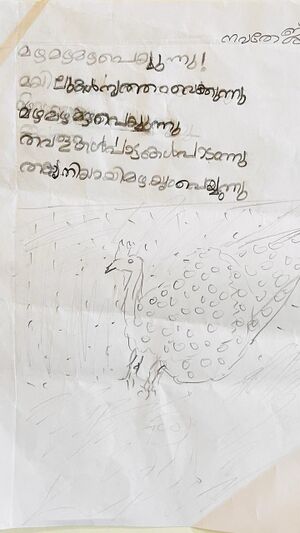 നവതേജ
മഴമഴമഴപെയ്യുന്നു!
മയിലുകൾനൃത്തംവെക്കുന്നു
മഴമഴമഴപെയ്യുന്നു
തവളകൾപാട്ടുകൾപാടുന്നു
തക്കിനിയായിമഴയുംപെയ്യുന്നു